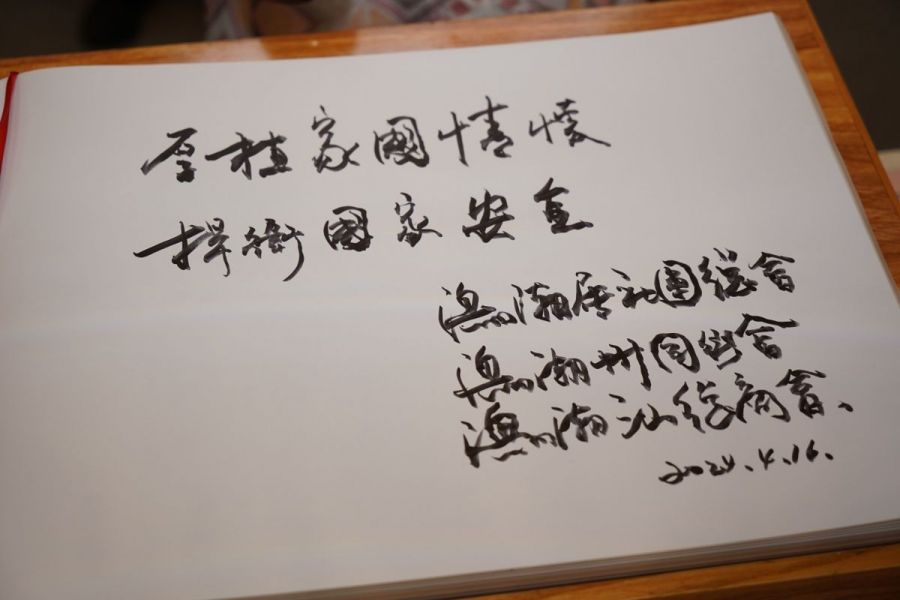 厚植家國情懷
捍衛國家安全
澳門潮屬社團總會
澳門潮州同鄉會
澳門潮汕總商會、
2024.4.16.